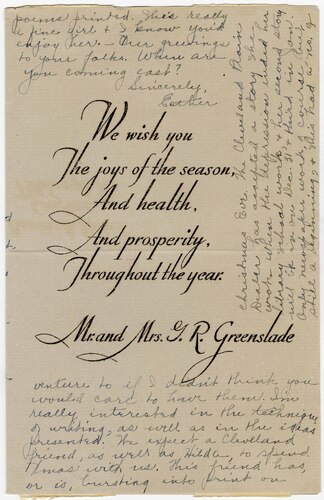 poems printed. She's really
a fine girl & I know you'd
enjoy her. — Our greetings
to your folks. When are
you coming east?
Sincerely,
Esther
We wish you
The joys of the season,
And health,
And prosperity,
Throughout the year.
Mr. and Mrs. G. R. Greenslade
venture to if I didn't think you
would care to have them. I'm
really interested in the technique
of writing, as well as in the ideas
presented. We expect a Cleveland
friend, as well as Hilda, to spend
Xmas with us. This friend has,
or is, bursting into print on
Christmas Eve. The Cleveland Plain
Dealer has accepted a story. She
took when the depression ended her
library work. Her second story
will be in on Dec. 31 & third in Jan.
Only newspaper work, of course, but
still a beginning, & she's had a no. of